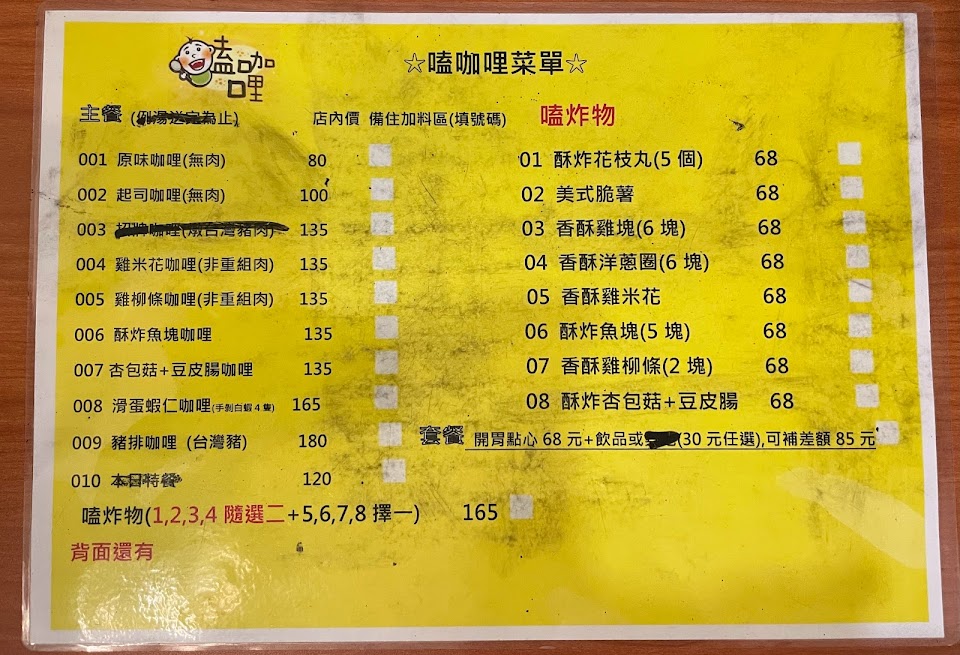 嗑咖哩
☆嗑咖哩菜單☆
主餐 (例湯送完為止) 店內價 備住加料區(填號碼)
001 原味咖哩(無肉) 80
002 起司咖哩(無肉) 100
003 招牌咖哩(燉台灣豬肉) 135
004 雞米花咖哩(非重組肉) 135
005 雞柳條咖哩(非重組肉) 135
006 酥炸魚塊咖哩 135
007 杏包菇+豆皮腸咖哩 135
008 滑蛋蝦仁咖哩(手剝白蝦 4 隻) 165
009 豬排咖哩 (台灣豬) 180
010 本日特餐 120
嗑炸物(1,2,3,4 隨選二+5,6,7,8 擇一) 165
背面還有
嗑炸物
01 酥炸花枝丸(5 個) 68
02 美式脆薯 68
03 香酥雞塊(6 塊) 68
04 香酥洋蔥圈(6 塊) 68
05 香酥雞米花 68
06 酥炸魚塊(5 塊) 68
07 香酥雞柳條(2 塊) 68
08 酥炸杏包菇+豆皮腸 68
套餐 開胃點心 68 元+飲品或(30 元任選),可補差額 85 元